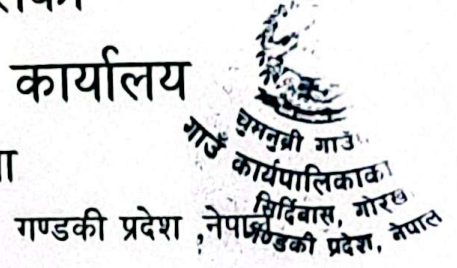 कार्यालय
गण्डकी प्रदेश ,नेपाल
चुमनुव्री गाउँ
गाउँ कार्यपालिकाको
सिर्दिबास, गोरखा
गण्डकी प्रदेश, नेपाल